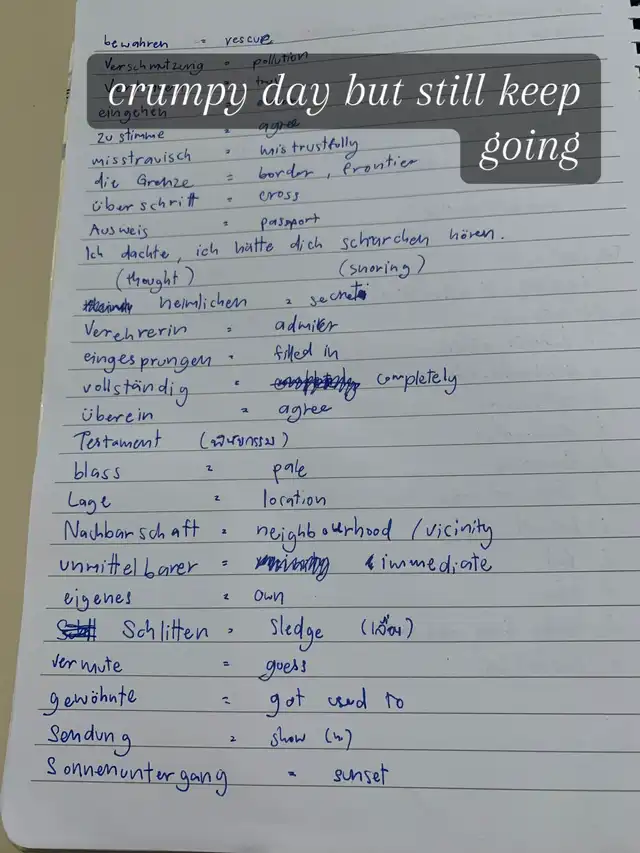 bewahren = rescue
Verschmutzung = pollution
crumpy day but still keep
going
eingehen
zustimme = agree
misstrauisch = mistrustfully
die Grenze = border, frontier
überschritt = cross
Ausweis = passport
Ich dachte, ich hätte dich scharchen hören.
(thought) (snoring)
heimlichen = secret
Verehrerin = admirer
eingesprungen = filled in
vollständig = completely
überein = agree
Testament (พินัยกรรม)
blass = pale
Lage = location
Nachbarschaft = neighbourhood / vicinity
unmittelbarer = immediate
eigenes = own
Schlitten = Sledge (เลื่อน)
vermute = guess
gewöhnte = got used to
Sendung = show (n)
Sonnenuntergang = sunset